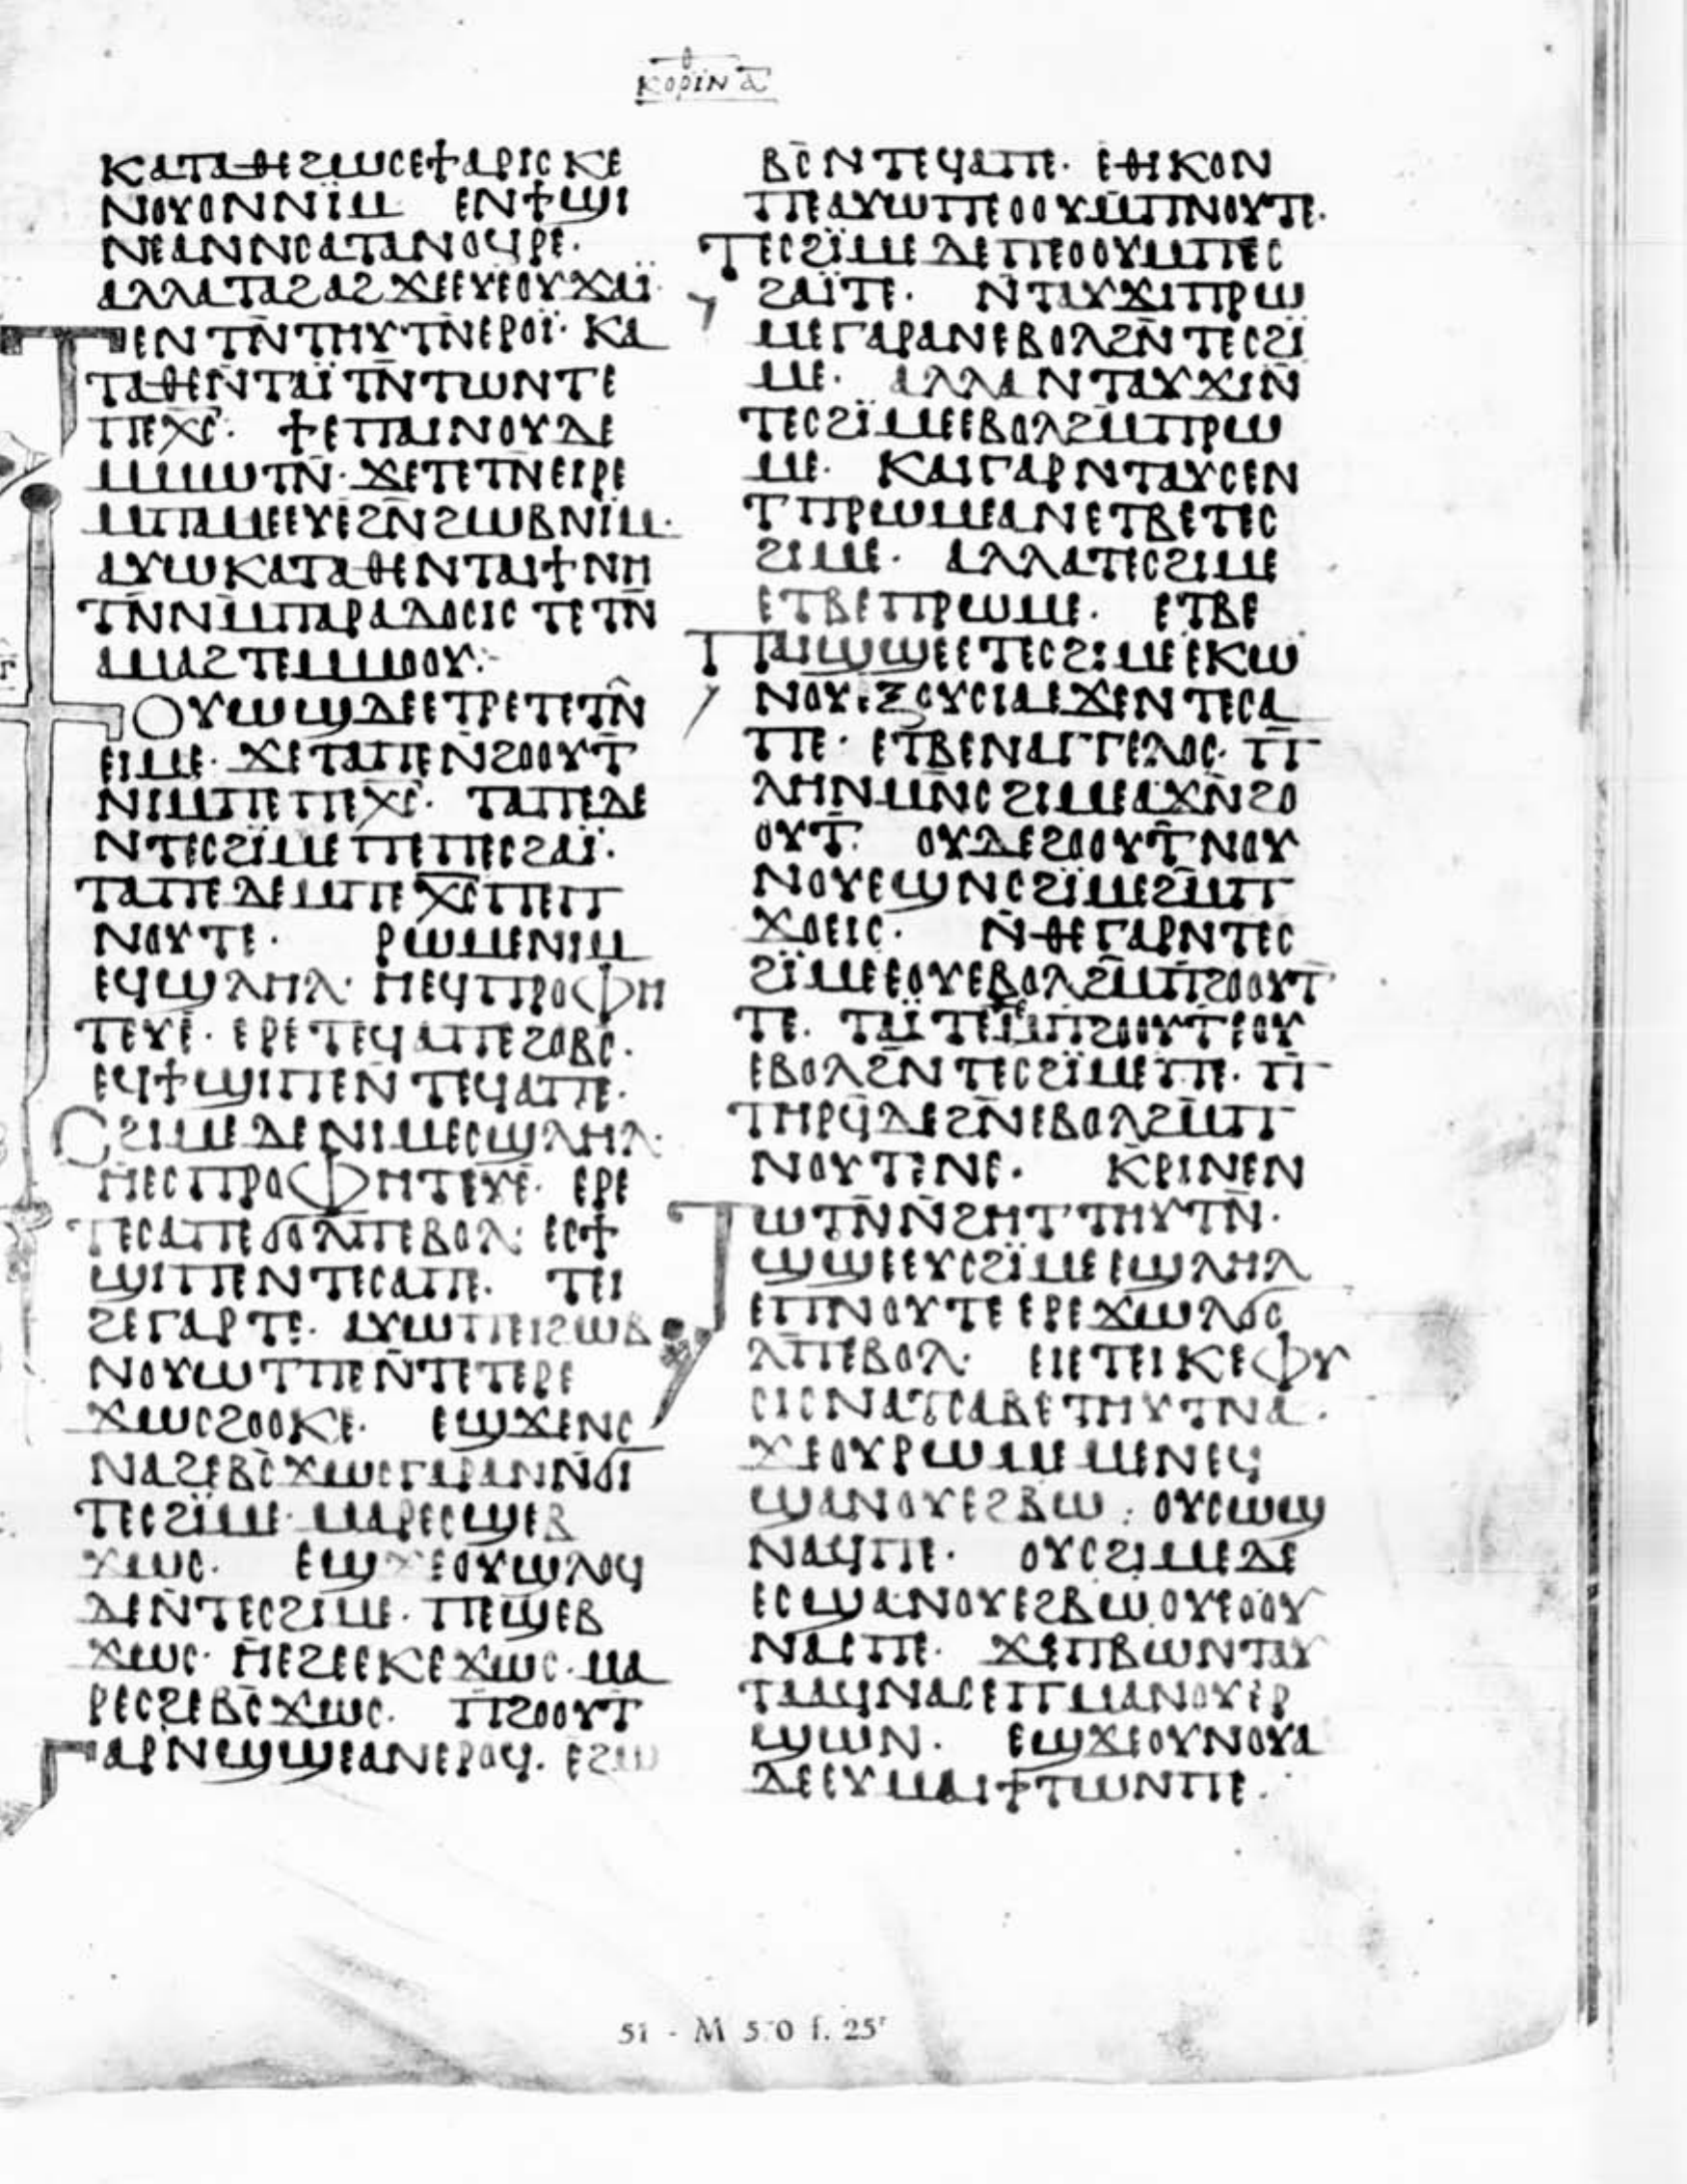 ⲕⲟⲣⲓⲛⲑ ⲁ̅
ⲕⲁⲧⲁⲑⲉϩⲱⲥⲉϯⲁⲣⲓⲥⲕⲉ
ⲛⲟⲩⲟⲛⲛⲓ̈ⲙ ⲉⲛϯϣⲓ
ⲛⲉⲁⲛⲛⲥⲁⲧⲁⲛⲟϥⲣⲉ·
ⲁⲗⲗⲁⲧⲁϩⲁϩϫⲉⲉⲩⲉⲟⲩϫⲁⲓ̈·
ⲧⲉⲛⲧⲛ̅ⲧⲏⲩⲧⲛ̅ⲉⲣⲟⲓ̈· ⲕⲁ
ⲧⲁⲑⲉⲛ̅ⲧⲁⲓ̈ⲧⲛ̅ⲧⲱⲛⲧⲉ
ⲡⲉⲭ̅ⲥ̅· ϯⲉⲡⲁⲓⲛⲟⲩⲇⲉ
ⲙⲙⲱⲧⲛ̅· ϫⲉⲧⲉⲧⲛ̅ⲉⲓⲣⲉ
ⲙⲡⲁⲙⲉⲉⲩⲉϩⲛ̅ϩⲱⲃⲛⲓ̈ⲙ·
ⲁⲩⲱⲕⲁⲧⲁⲑⲉⲛⲧⲁⲓϯⲛⲏ
ⲧⲛ̅ⲛⲙ̅ⲡⲁⲣⲁⲇⲟⲥⲓⲥ ⲧⲉⲧⲛ̅
ⲁⲙⲁϩⲧⲉⲙⲙⲟⲟⲩ:-
ϯⲟⲩⲱϣⲇⲉⲉⲧⲣⲉⲧⲉⲧⲛ̅
ⲉⲓⲙⲉ· ϫⲉⲧⲁⲡⲉⲛ̅ϩⲟⲟⲩⲧ̅
ⲛⲓⲙⲡⲉⲡⲉⲭ̅ⲥ̅· ⲧⲁⲡⲉⲇⲉ
ⲛⲧⲉⲥϩⲓ̈ⲙⲉⲡⲉⲡⲉⲥϩⲁⲓ̈·
ⲧⲁⲡⲉⲇⲉⲙⲡⲉⲭ̅ⲥ̅ⲡⲉⲡ
ⲛⲟⲩⲧⲉ· ⲣⲱⲙⲉⲛⲓⲙ
ⲉϥϣⲗⲏⲗ· ⲏⲉϥⲡⲣⲟⲫⲏ
ⲧⲉⲩⲉ· ⲉⲣⲉⲧⲉϥⲁⲡⲉϩⲟⲃⲥ̅·
ⲉϥϯϣⲓⲡⲉⲛ̅ⲧⲉϥⲁⲡⲉ·
ⲥϩⲓⲙⲉⲇⲉⲛⲓⲙⲉⲥϣⲗⲏⲗ·
ⲏⲉⲥⲡⲣⲟⲫⲏⲧⲉⲩⲉ· ⲉⲣⲉ
ⲧⲉⲥⲁⲡⲉϭⲟⲗⲡ̅ⲉⲃⲟⲗ· ⲉⲥϯ
ϣⲓⲡⲉⲛⲧⲉⲥⲁⲡⲉ· ⲧⲉⲓ
ϩⲉⲅⲁⲣⲧⲉ· ⲁⲩⲱⲡⲉⲓϩⲱⲃ
ⲛⲟⲩⲱⲧⲡⲉⲛ̅ⲧⲉⲧⲉⲣⲉ
ϫⲱⲥϩⲟⲟⲕⲉ· ⲉϣϫⲉⲛⲥ
ⲛⲁϩⲉⲃⲥ̅ϫⲱⲥⲅⲁⲣⲁⲛⲛ̅ϭⲓ
ⲧⲉⲥϩⲓ̈ⲙⲉ· ⲙⲁⲣⲉⲥϣⲉⲃ
ϫⲱⲥ· ⲉϣϫⲉⲟⲩϣⲗⲟϥ
ⲇⲉⲛ̅ⲧⲉⲥϩⲓⲙⲉ· ⲡⲉϣⲉⲃ
ϫⲱⲥ· ⲏⲉϩⲉⲉⲕⲉϫⲱⲥ· ⲙⲁ
ⲣⲉⲥϩⲉⲃⲥ̅ϫⲱⲥ· ⲡ̅ϩⲟⲟⲩⲧ
ⲅⲁⲣⲛϣϣⲉⲁⲛⲉⲣⲟϥ· ⲉϩⲱ
ⲃⲥ̅ⲛⲧⲉϥⲁⲡⲉ· ⲉⲑⲓⲕⲱⲛ
ⲡⲉⲁⲩⲱⲡⲉⲟⲟⲩⲙ̅ⲡⲛⲟⲩⲧⲉ·
ⲧⲉⲥϩⲓ̈ⲙⲉⲇⲉⲡⲉⲟⲟⲩⲙⲡⲉⲥ
ϩⲁⲓ̈ⲧⲉ· ⲛ̅ⲧⲁⲩϫⲓⲡⲣⲱ
ⲙⲉⲅⲁⲣⲁⲛⲉⲃⲟⲗϩⲛ̅ⲧⲉⲥϩⲓ̈
ⲙⲉ· ⲁⲗⲗⲁⲛⲧⲁⲩϫⲓⲛ̅
ⲧⲉⲥϩⲓ̈ⲙⲉⲉⲃⲟⲗϩⲙ̅ⲡⲣⲱ
ⲙⲉ· ⲕⲁⲓⲅⲁⲣⲛⲧⲁⲩⲥⲉⲛ
ⲧⲡⲣⲱⲙⲉⲁⲛⲉⲧⲃⲉⲧⲉⲥ
ϩⲓⲙⲉ· ⲁⲗⲗⲁⲧⲉⲥϩⲓⲙⲉ
ⲉⲧⲃⲉⲡⲣⲱⲙⲉ· ⲉⲧⲃⲉ
ⲡⲁⲓϣϣⲉⲉⲧⲉⲥϩⲓⲙⲉⲉⲕⲱ
ⲛⲟⲩⲉⲝⲟⲩⲥⲓⲁⲉϫⲉⲛⲧⲉⲥⲁ
ⲡⲉ· ⲉⲧⲃⲉⲛⲁⲅⲅⲉⲗⲟⲥ· ⲡ̅
ⲗⲏⲛⲙⲛ̅ⲥϩⲓⲙⲉⲁϫⲛ̅ϩⲟ
ⲟⲩⲧ̅· ⲟⲩⲇⲉϩⲟⲟⲩⲧ̅ⲛⲟⲩ
ⲛⲟⲩⲉϣⲛⲥϩⲓ̈ⲙⲉϩⲙ̅ⲡ
ϫⲟⲉⲓⲥ· ⲛ̅ⲑⲉⲅⲁⲣⲛⲧⲉⲥ
ϩⲓ̈ⲙⲉⲉⲟⲩⲉⲃⲟⲗϩⲙ̅ⲡϩⲟⲟⲩⲧ
ⲧⲉ· ⲧⲁⲓ̈ⲧⲉⲑⲉⲙ̅ⲡϩⲟⲟⲩⲧⲉⲟⲩ
ⲉⲃⲟⲗϩⲛ̅ⲧⲉⲥϩⲓ̈ⲙⲉⲡⲉ· ⲡ̅
ⲧⲏⲣϥ̅ⲇⲉϩⲛ̅ⲉⲃⲟⲗϩⲙ̅ⲡ
ⲛⲟⲩⲧⲉⲛⲉ· ⲕⲣⲓⲛⲉⲛ
ⲧⲱⲧⲛ̅ⲛ̅ϩⲏⲧⲧⲏⲩⲧⲛ̅·
ϣϣⲉⲉⲩⲥϩⲓ̈ⲙⲉⲉϣⲗⲏⲗ
ⲉⲡⲛⲟⲩⲧⲉⲉⲣⲉϫⲱⲥϭⲟ
ⲗⲡ̅ⲉⲃⲟⲗ· ⲉⲓⲉⲧⲉⲓⲕⲉⲫⲩ
ⲥⲓⲥⲛⲁⲧⲥⲁⲃⲉⲧⲏⲩⲧⲛⲁ·
ϫⲉⲟⲩⲣⲱⲙⲉⲙⲉⲛⲉϥ
ϣⲁⲛⲟⲩⲉϩⲃⲱ: ⲟⲩⲥⲱϣ
ⲛⲁϥⲡⲉ· ⲟⲩⲥϩⲓⲙⲉⲇⲉ
ⲉⲥϣⲁⲛⲟⲩⲉϩⲃⲱ.ⲟⲩⲉⲟⲟⲩ
ⲛⲁⲥⲡⲉ· ϫⲉⲡⲃⲱⲛⲧⲁⲩ
ⲧⲁⲁϥⲛⲁⲥⲉⲡⲙⲁⲛⲟⲩⲉⲣ
ϣⲱⲛ· ⲉϣϫⲉⲟⲩⲛⲟⲩⲁ
ⲇⲉⲉⲩⲙⲁⲓϯⲧⲱⲛⲡⲉ·
51 - M 570 f. 25ʳ